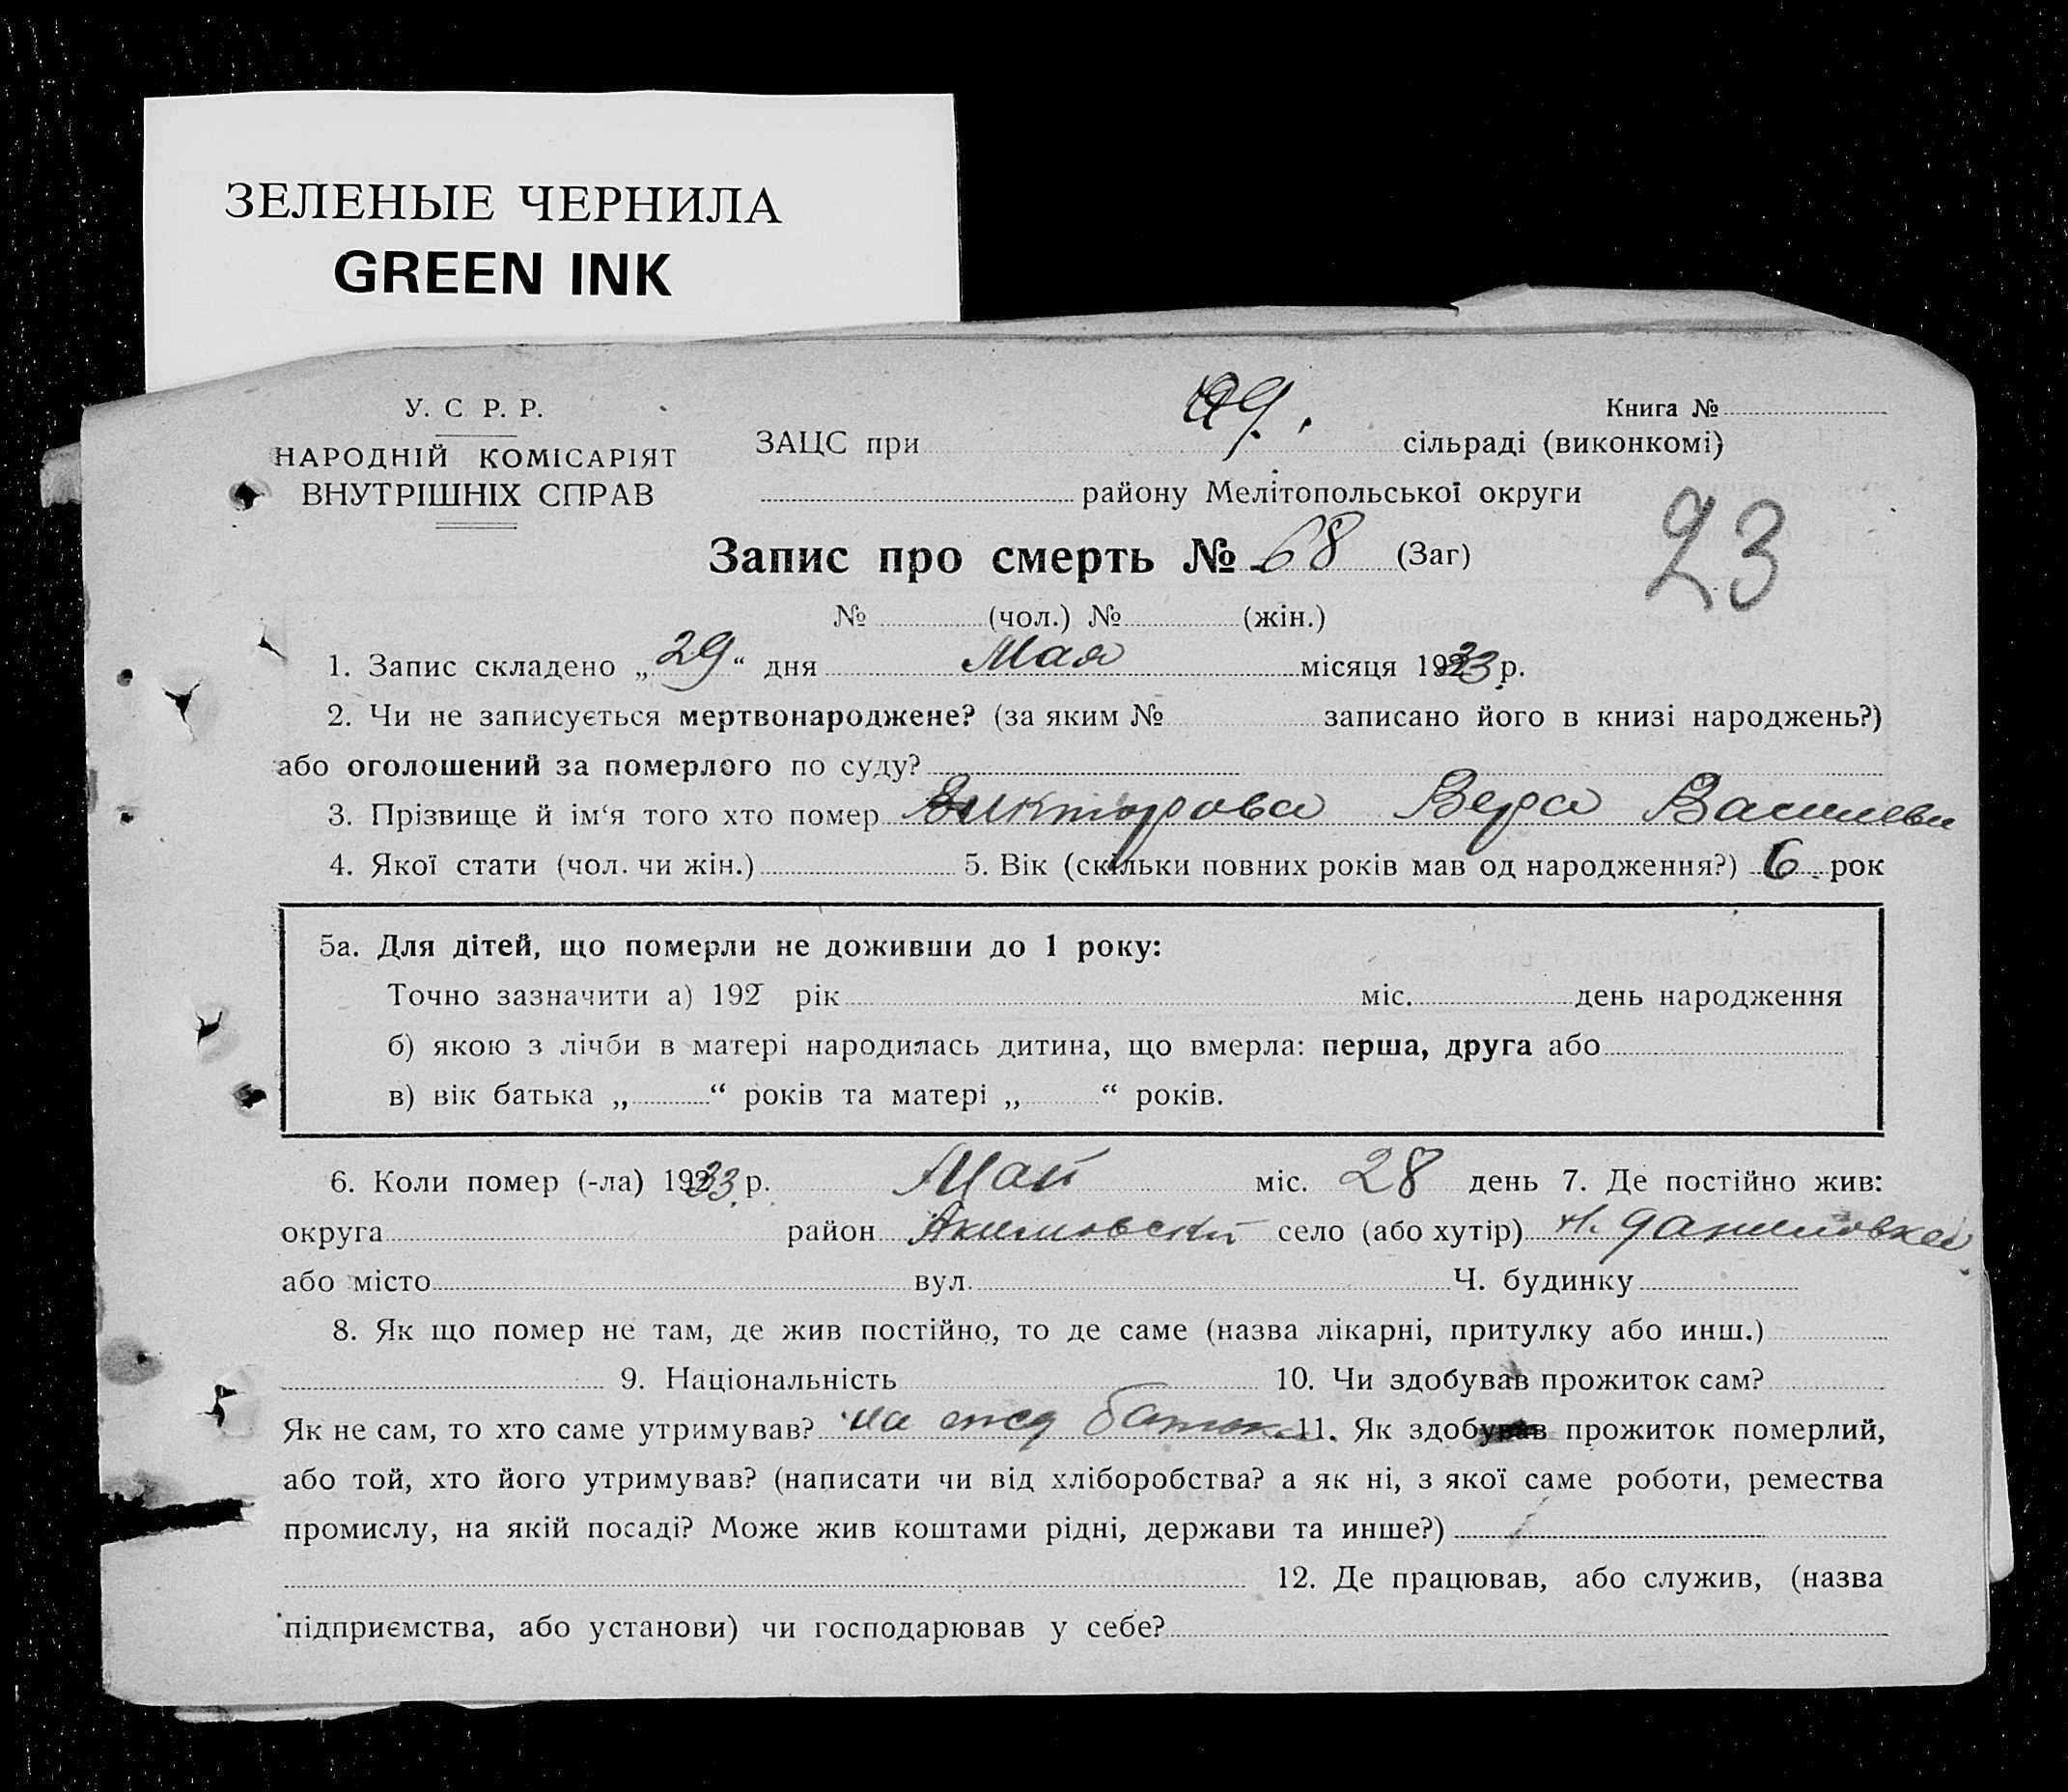 ЗЕЛЕНЫЕ ЧЕРНИЛА
GREEN INK
У. С Р. Р.
НАРОДНІЙ КОМІСАРІЯТ
ВНУТРІШНІХ СПРАВ
Книга №
ЗАЦС при сільраді (виконкомі)
району Мелітопольської округи
23
Запис про смерть № 68 (Заг)
№ (чол.) № (жін.)
1. Запис складено „29“ дня Мая місяця 1933 р.
2. Чи не записується мертвонароджене? (за яким № записано його в книзі народжень?)
або оголошений за померлого по суду?
3. Прізвище й ім‘я того хто помер Викторова Вера Васильевн
4. Якої стати (чол. чи жін.) 5. Вік (скільки повних років мав од народження?) 6 рок
5а. Для дітей, що померли не доживши до 1 року:
Точно зазначити а) 192 рік міс. день народження
б) якою з лічби в матері народилась дитина, що вмерла: перша, друга або
в) вік батька „ “ років та матері „ “ років.
6. Коли помер (-ла) 1933 р. Май міс. 28 день 7. Де постійно жив:
округа район Акимовский село (або хутір) Н. Даниловка
або місто вул. Ч. будинку
8. Як що помер не там, де жив постійно, то де саме (назва лікарні, притулку або инш.)
9. Національність 10. Чи здобував прожиток сам?
Як не сам, то хто саме утримував? на ижд батька 11. Як здобував прожиток померлий,
або той, хто його утримував? (написати чи від хліборобства? а як ні, з якої саме роботи, ремества
промислу, на якій посаді? Може жив коштами рідні, держави та инше?)
12. Де працював, або служив, (назва
підприємства, або установи) чи господарював у себе?